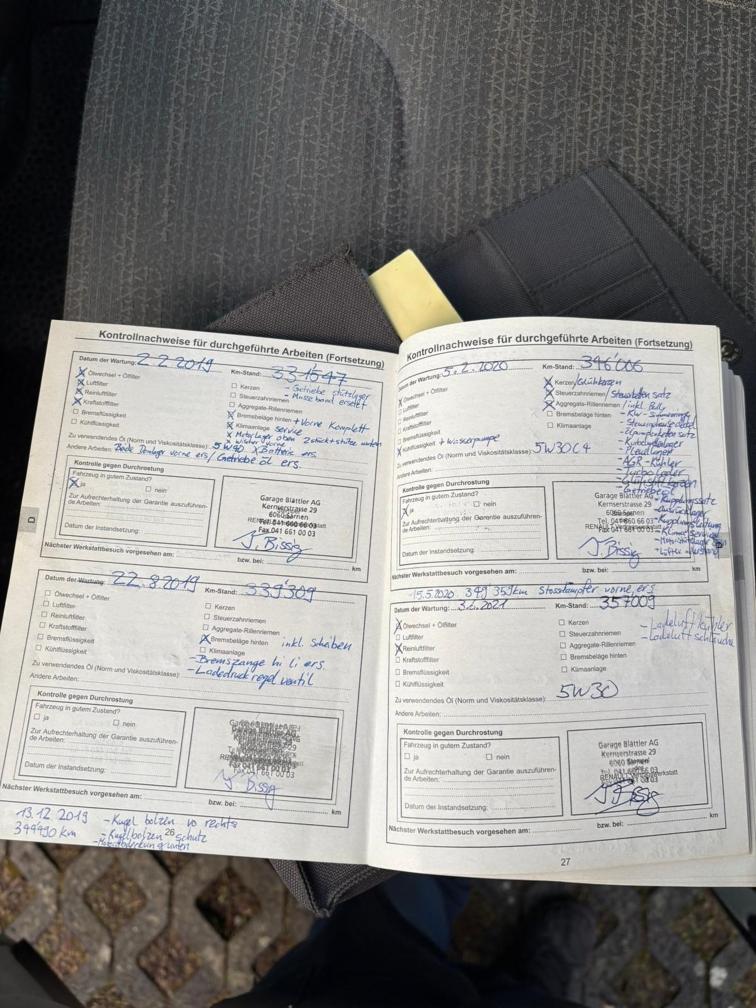 Kontrollnachweise für durchgeführte Arbeiten (Fortsetzung)
Datum der Wartung: 2.2.2019 Km-Stand: 331547
Ölwechsel + Ölfilter
Luftfilter
Reinluftfilter
Kraftstofffilter
Bremsflüssigkeit
Kühlflüssigkeit
Kerzen
Steuerzahnriemen
Aggregate-Rillenriemen
Bremsbeläge hinten + Vorne Komplett
Klimaanlage service
- Getriebe
- Masseband ersetzt
Zu verwendendes Öl (Norm und Viskositätsklasse): 5W40 x Batterie ers.
Andere Arbeiten: vorne ers/ Getriebe öl ers.
Kontrolle gegen Durchrostung
Fahrzeug in gutem Zustand?
ja nein
Zur Aufrechterhaltung der Garantie auszuführende Arbeiten:
Datum der Instandsetzung:
Garage Blättler AG
Kernserstrasse 29
6060 Sarnen
Tel. 041 660 66 03
Fax 041 661 00 03
J. Bissig
Nächster Werkstattbesuch vorgesehen am: bzw. bei: km
Datum der Wartung: 22.8.2019 Km-Stand: 339'309
Ölwechsel + Ölfilter
Luftfilter
Reinluftfilter
Kraftstofffilter
Bremsflüssigkeit
Kühlflüssigkeit
Kerzen
Steuerzahnriemen
Aggregate-Rillenriemen
Bremsbeläge hinten inkl. Scheiben
Klimaanlage
- Bremszange hi li ers.
- Ladedruck regel ventil
Zu verwendendes Öl (Norm und Viskositätsklasse):
Andere Arbeiten:
Kontrolle gegen Durchrostung
Fahrzeug in gutem Zustand?
ja nein
Zur Aufrechterhaltung der Garantie auszuführende Arbeiten:
Datum der Instandsetzung:
Fax 041 661 00 03
J. Bissig
Nächster Werkstattbesuch vorgesehen am: bzw. bei: km
13.12.2019 - Kugel bolzen vo rechts
344490 km - Kugelbolzen schutz
unten
26
D
Kontrollnachweise für durchgeführte Arbeiten (Fortsetzung)
Datum der Wartung: 5.2.2020 Km-Stand: 346'006
Ölwechsel + Ölfilter
Luftfilter
Reinluftfilter
Kraftstofffilter
Bremsflüssigkeit
Kühlflüssigkeit + Wasserpumpe
Kerzen/Glühkerzen
Steuerzahnriemen
Aggregate-Rillenriemen /inkl.
Bremsbeläge hinten
Klimaanlage
- Pleullager
- AGR-Kühler
- Turbolader
Zu verwendendes Öl (Norm und Viskositätsklasse): 5W30 C4
Andere Arbeiten:
Kontrolle gegen Durchrostung
Fahrzeug in gutem Zustand?
ja nein
Zur Aufrechterhaltung der Garantie auszuführende Arbeiten:
Datum der Instandsetzung:
- Kupplungssatz
Garage Blättler AG
Kernserstrasse 29
6060 Sarnen
Tel. 041 660 66 03
Fax 041 661 00 03
J. Bissig
Nächster Werkstattbesuch vorgesehen am: bzw. bei: km
- 15.5.2020 349 359km Stossdämpfer vorne ers
Datum der Wartung: 3.2.2021 Km-Stand: 357009
Ölwechsel + Ölfilter
Luftfilter
Reinluftfilter
Kraftstofffilter
Bremsflüssigkeit
Kühlflüssigkeit
Kerzen
Steuerzahnriemen
Aggregate-Rillenriemen
Bremsbeläge hinten
Klimaanlage
- Ladeluftkühler
- Ladeluftschläuche
Zu verwendendes Öl (Norm und Viskositätsklasse): 5W30
Andere Arbeiten:
Kontrolle gegen Durchrostung
Fahrzeug in gutem Zustand?
ja nein
Zur Aufrechterhaltung der Garantie auszuführende Arbeiten:
Datum der Instandsetzung:
Garage Blättler AG
Kernserstrasse 29
6060 Sarnen
Tel. 041 660 66 03
Fax 041 661 00 03
J. Bissig
Nächster Werkstattbesuch vorgesehen am: bzw. bei: km
27